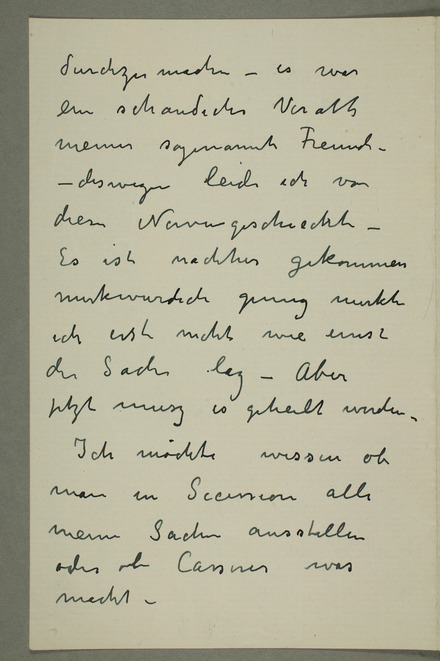 durchzumachen – es war
ein schändliches Verath
meiner sogenannte Freunde –
– deswegen leide ich von
diese Nervengeschichte –
Es ist nachher gekommen
merkwürdich genug merkte
ich erst nicht wie ernst
die Sache lag – Aber
jetzt musz es geheilt werden.
Ich möchte wissen ob
man in Secession alle
meine Sachen ausstellen
oder ob Cassirer was
macht –